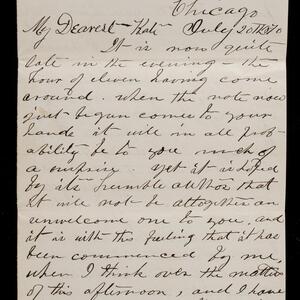 Chicago
My Dearest Kate July 20th
It is now quite
late in the evening - the
hour of eleven having come
around. when the note now
just began comes to your
hands it will in all prob-
ability be to you much of
a surprise. yet it is hoped
by its humble author that
it will not be altogether an
unwelcome one to you. and
it is with this feeling that it has
been commenced by me,
when I think over the matter
of this afternoon, and I have